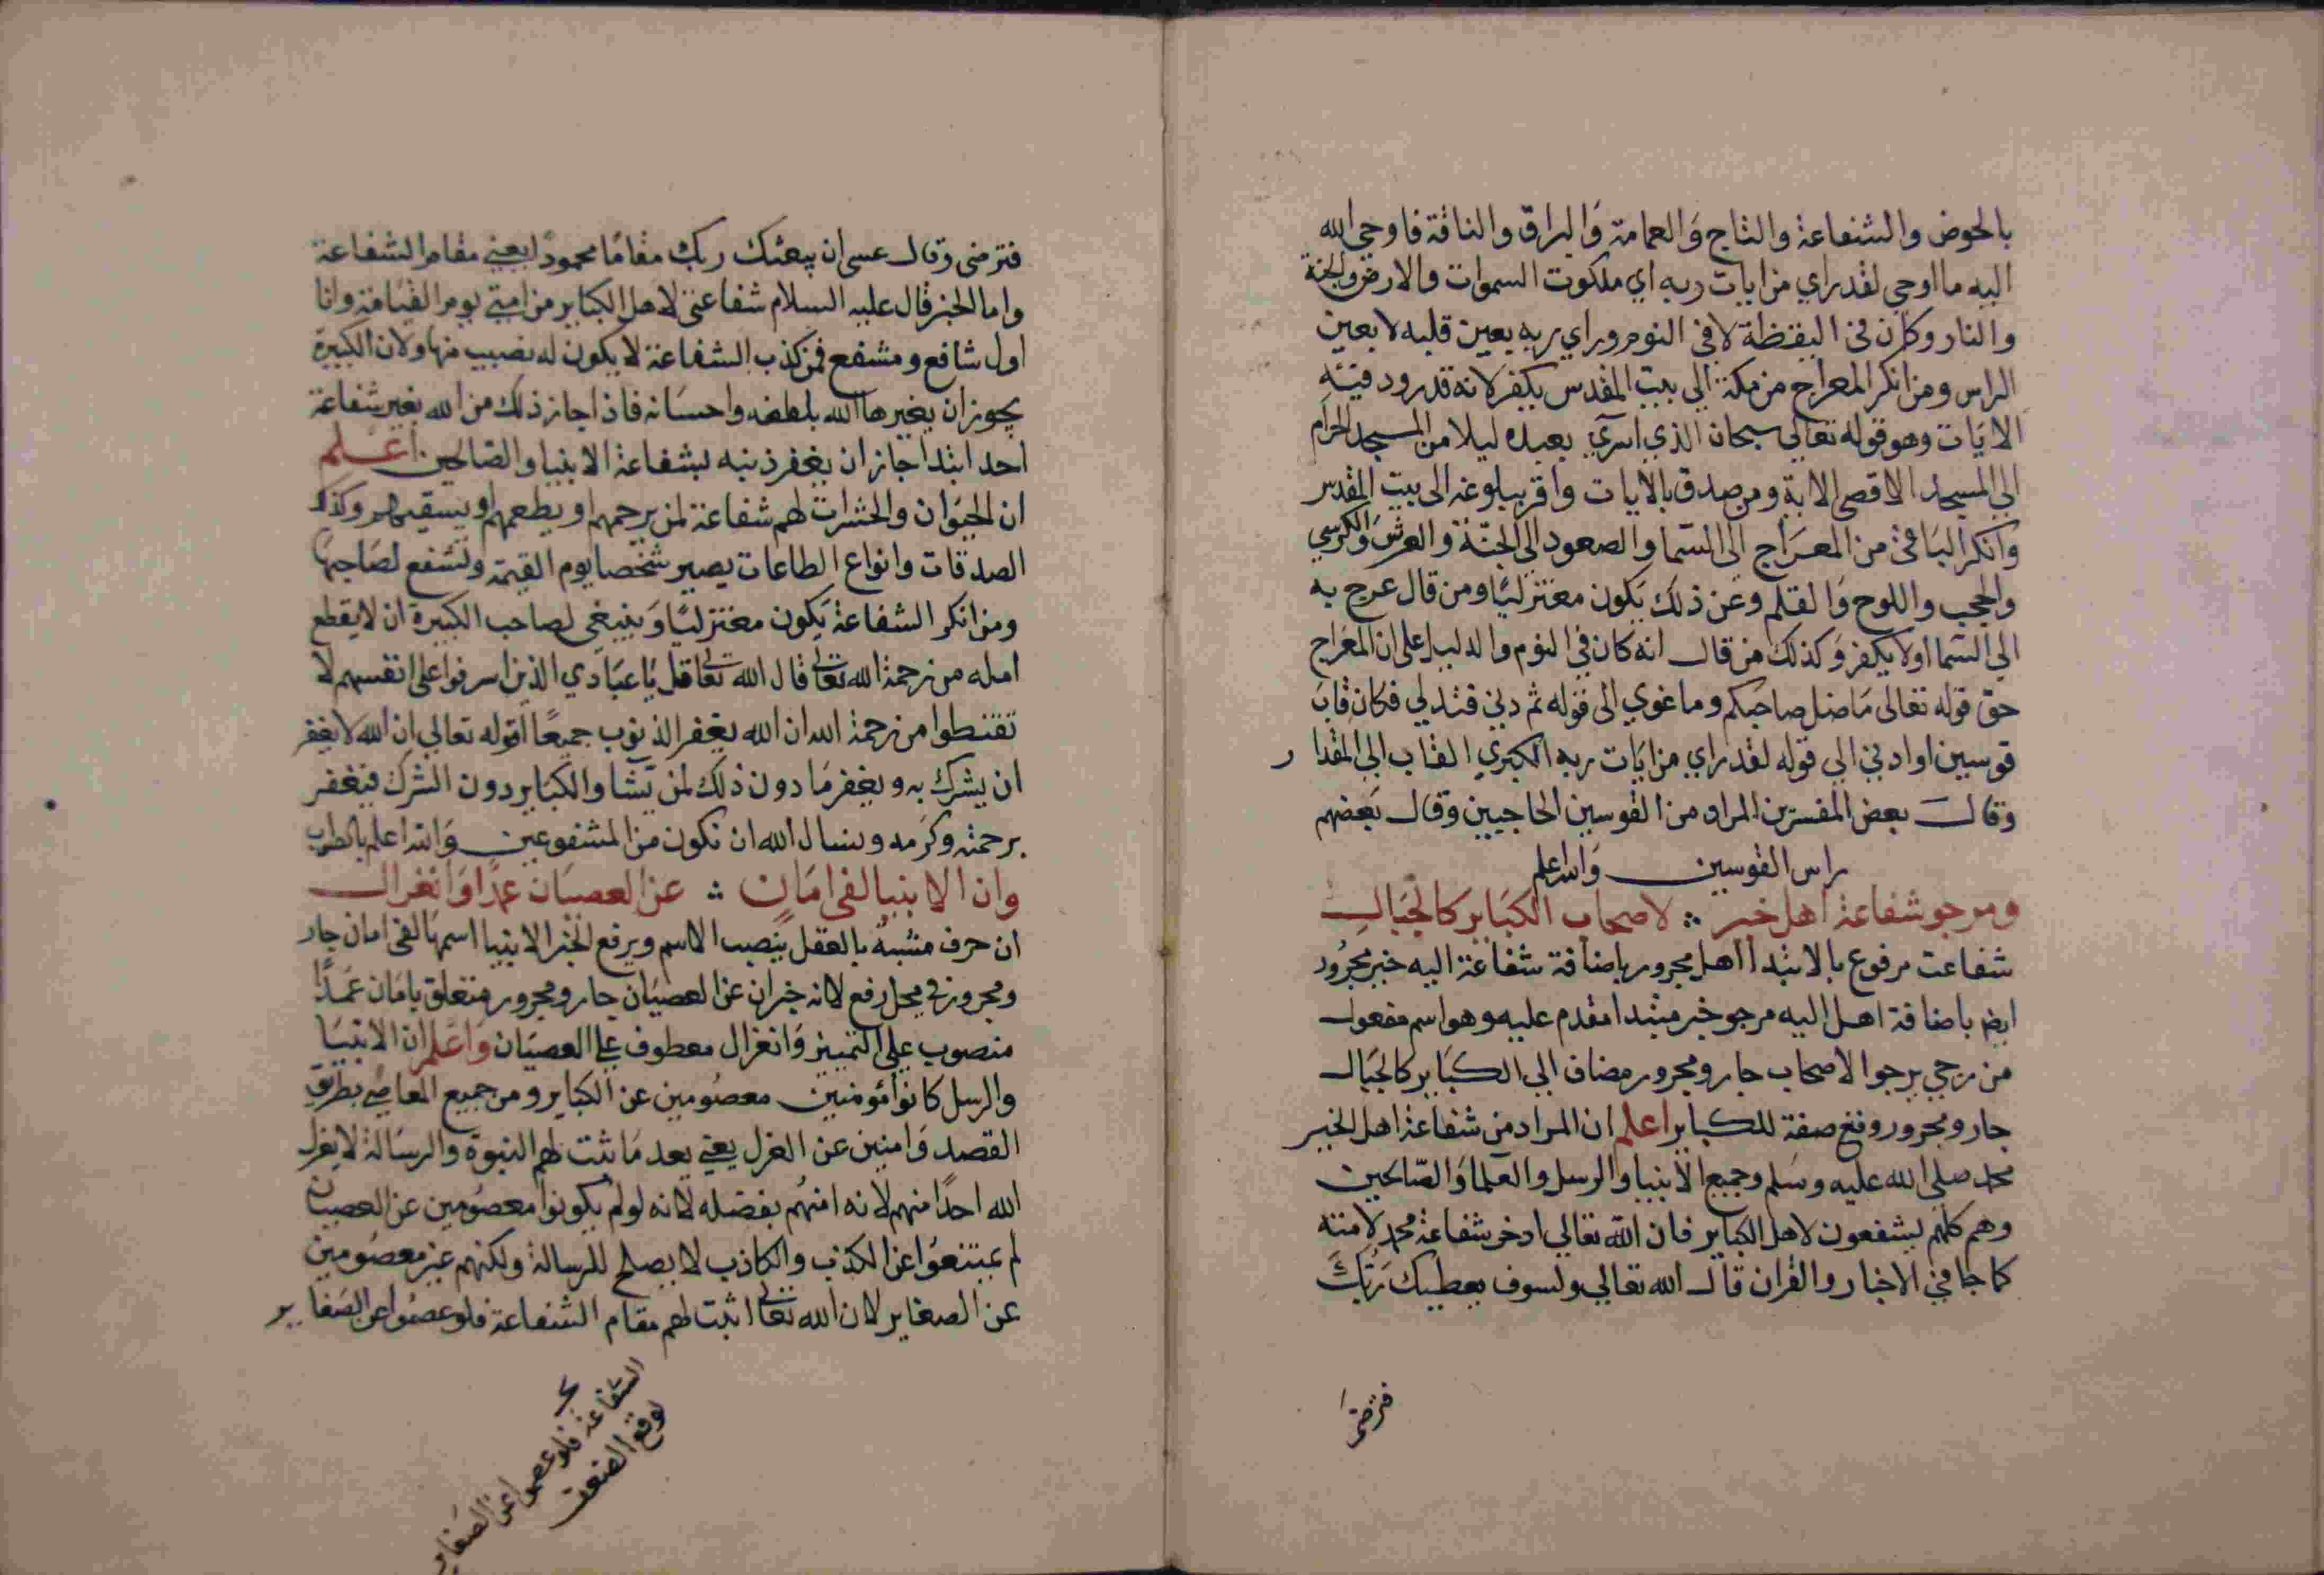 بالحوض والشفاعة والتاج والعمامة والبراق والناقة فاوحي الله
اليه ما اوحي لقد راي من ايات ربه اي ملكوت السموات والارض والجنة
والنار وكان في اليقظة لا في النوم وراي ربه بعين قلبه لا بعين
الراس ومن انكر المعراج من مكة الي بيت المقدس يكفر لانه قد رود فيته
الايات وهو قوله تعالي سبحان الذي اسري بعبده ليلا من المسجد الحرام
الي المسجد الاقصي الاية ومن صدق بالايات واقر ببلوغه الي بيت المقدس
وانكر الباقي من المعراج الي السما والصعود الي الجنة والعرش والكرسي
والحجب واللوح والقلم وعن ذلك يكون معتزليا ومن قال عرج به
الي السما اولا يكفر وكذلك من قال انه كان في النوم والدليل علي ان المعراج
حق قوله تعالي ما ضل صاحبكم وما غوي الي قوله ثم دني فتدلي فكان قاب
قوسين او ادني الي قوله لقد راي من ايات ربه الكبري القاب الي المقدار
وقال بعض المفسرين المراد من القوسين الحاجبين وقال بعضهم
راس القوسين والله اعلم
ومرجو شفاعة اهل خير ∴ لاصحاب الكباير كالجبال
شفاعت مرفوع بالابتدا اهل مجرور باضافة شفاعة اليه خير مجرور
ايضا باضافة اهل اليه مرجو خبر مبتدا مقدم عليه وهو اسم مفعول
من رجي يرجوا لاصحاب جار ومجرور مضاف الي الكباير كالجبال
جار ومجرور وقع صفة للكباير اعلم ان المراد من شفاعة اهل الخير
محمد صلي الله عليه وسلم وجميع الانبيا والرسل والعلما والصالحين
وهم كلهم يشفعون لاهل الكباير فان الله تعالي ادخر شفاعة محمد لامته
كما جا في الاخبار والقران قال الله تعالي ولسوف يعطيك ربك
فترضي
فترضي وقال عسي ان يبعثك ربك مقاما محمودا يعني مقام الشفاعة
واما الخبر قال عليه السلام شفاعتي لاهل الكباير من امتي يوم القيامة وانا
اول شافع ومشفع فمن كذب الشفاعة لا يكون له نصيب منها ولان الكبيرة
يجوز ان يغيرها الله بلطفه واحسانه فاذا جاز ذلك من الله بغير شفاعة
احد ابتدا جاز ان يغفر ذنبه بشفاعة الانبيا والصالحين اعلم
ان الحيوان والحشرات لهم شفاعة لمن يرحمهم او يطعمهم او يسقيهم وكذلك
الصدقات وانواع الطاعات يصير شخصا يوم القيمة وتشفع لصاحبها
ومن انكر الشفاعة يكون معتزليا وينبغي لصاحب الكبيرة ان لا يقطع
امله من رحمة الله تعالي قال الله تعالي قل يا عبادي الذين اسرفوا علي انفسهم لا
تقنطوا من رحمة الله ان الله يغفر الذنوب جميعا لقوله تعالي ان الله لا يغفر
ان يشرك به ويغفر ما دون ذلك لمن يشا والكباير دون الشرك فيغفر
برحمته وكرمه ونسال الله ان نكون من المشفوعين والله اعلم بالصواب
وان الانبيا لفي امان ∴ عن العصيان عمدا وانغزال
ان حرف مشبة بالفعل ينصب الاسم ويرفع الخبر الانبيا اسمها لفي امان جار
ومجرور في محل رفع لانه خبر ان عن العصيان جار ومجرور متعلق بامان عمدا
منصوب علي التمييز وانغزال معطوف علي العصيان واعلم ان الانبيا
والرسل كانوا مؤمنين معصومين عن الكباير ومن جميع المعاصي بطريق
القصد وامنين عن العزل يعني بعد ما ثبت لهم النبوة والرسالة لا يعزل
الله احدا منهم لانه امنهم بفضله لانه لو لم يكونوا معصومين عن العصيان
لم يمتنعوا عن الكذب والكاذب لا يصلح للرسالة ولكنهم غير معصومين
عن الصغاير لان الله تعالي اثبت لهم مقام الشفاعة فلو عصموا عن الصغاير
الشفاعة فلو عصموا عن الصغاير
لوقع الضعف